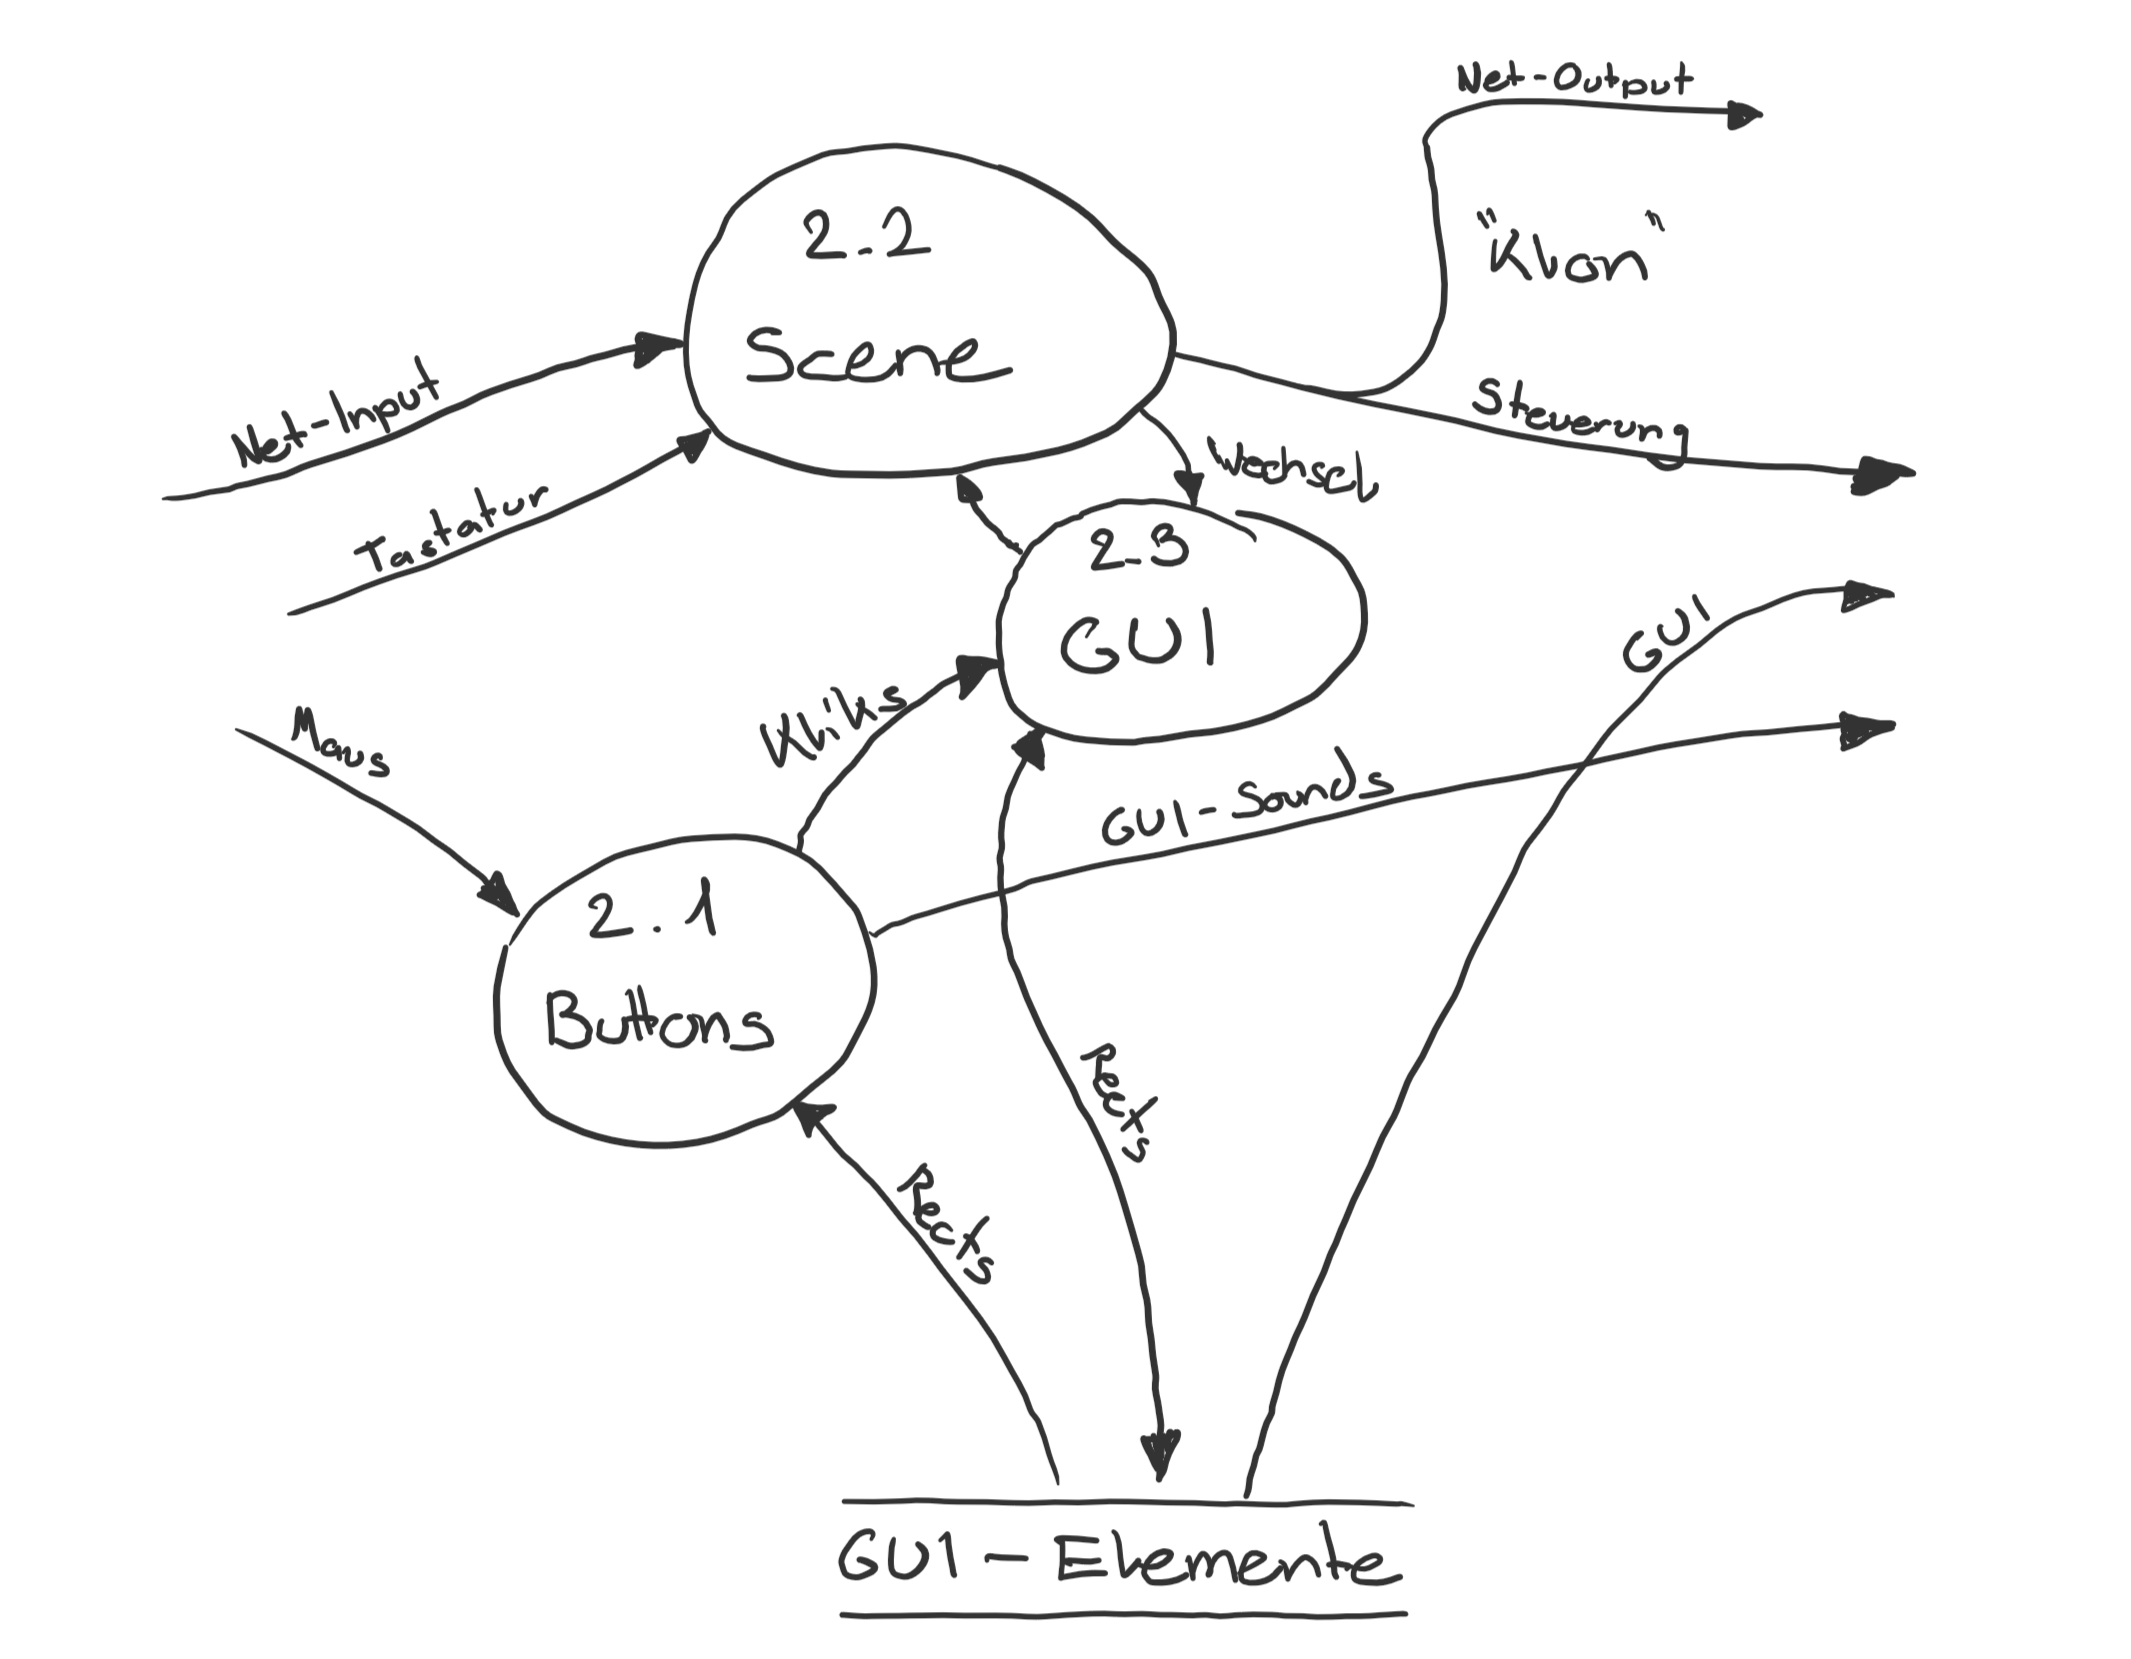 Net-Output
2.2
Scene
"Klon"
Net-Input
Steuerung
Tastatur
Wechsel
2.3
GUI
GUI
Maus
Kliks
GUI-Sounds
2.1
Buttons
Rects
Rects
GUI-Elemente